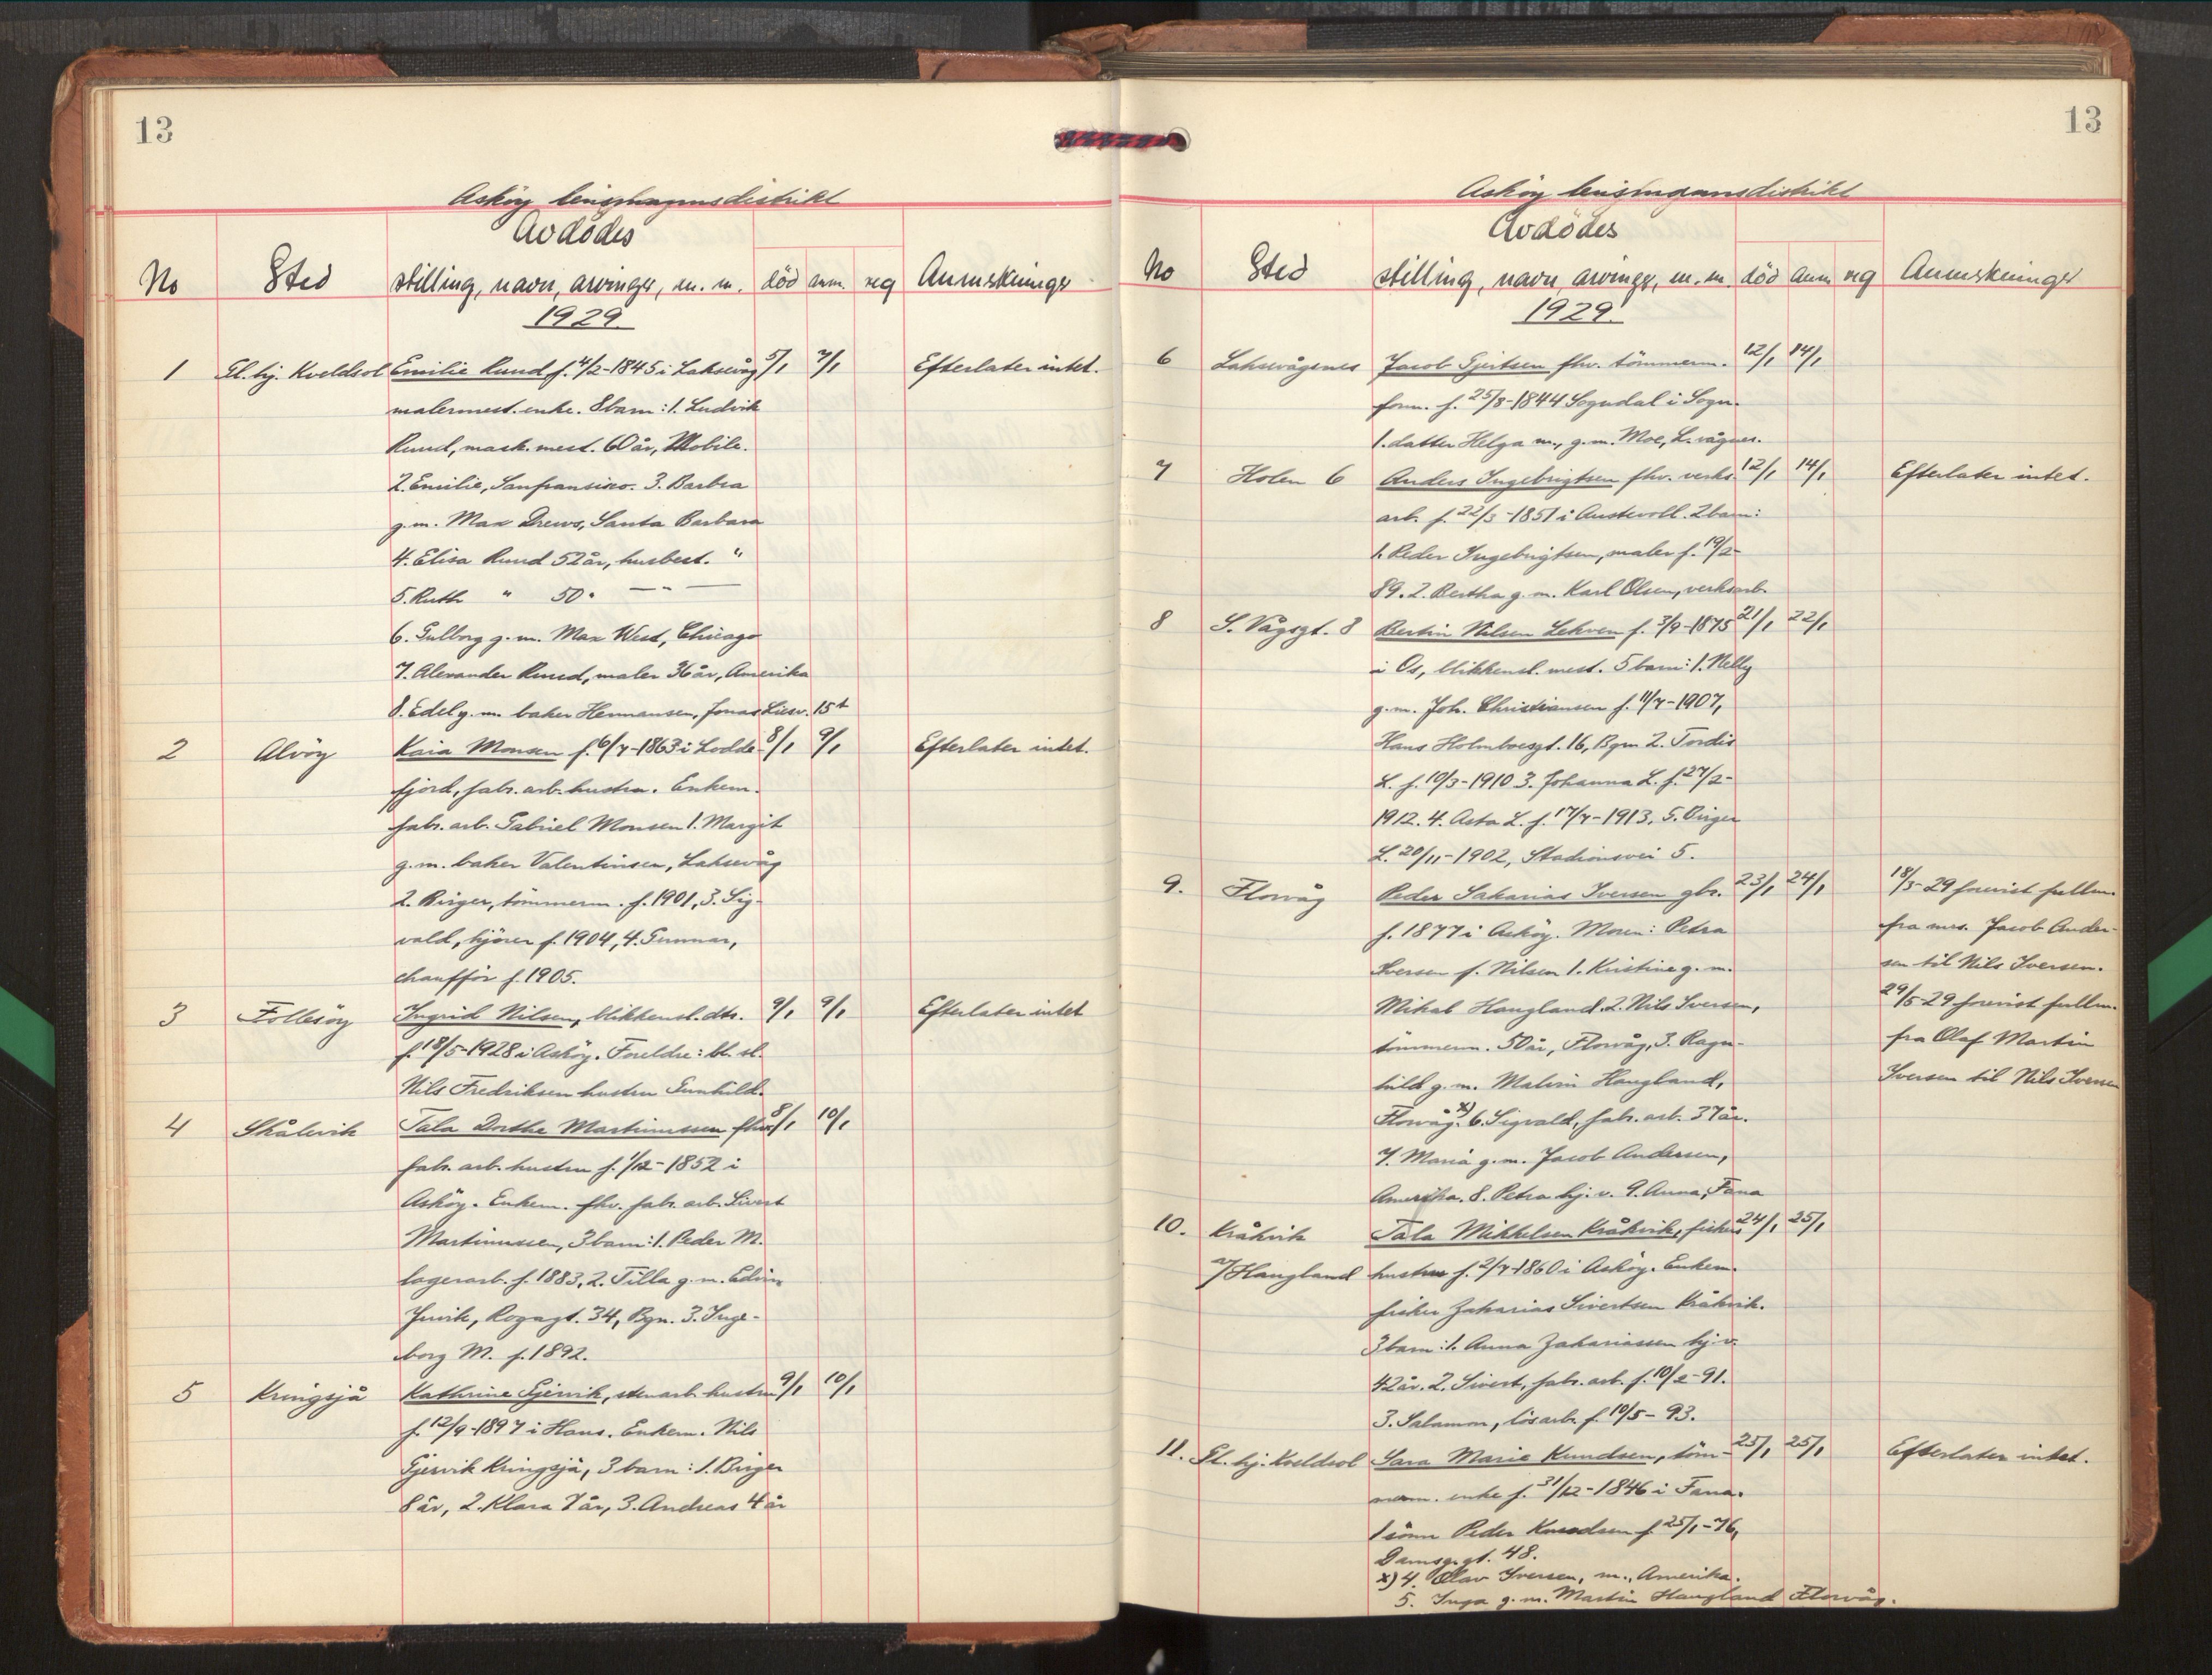 13
Askøy lensmannsdistrikt
Avdödes
No Sted stilling, navn, arvinger, m. m. död anm. reg Anmerkninger
1929.
1 Gl. hj. Kveldsol Emilie Rund f. 4/2-1845 i Laksevåg 5/1 7/1 Efterlater intet.
malermest. enke. 8 barn: 1. Ludvik
Rund, mask. mest. 60 år, Mobile.
2. Emilie, Sanfransisco. 3. Barbra
g. m. Max Drews, Santa Barbara
4. Elisa Rund 52 år, husbest. "
5. Ruth " 50 " — " —
6. Gulborg g. m. Max West, Chicago
7. Alexander Rund, maler 36 år, Amerika
8. Edel g. m. baker Hermansen, Jonas Liesv. 15 b
2 Alvöy Kaia Monsen f. 6/7-1863 i Lodde- 8/1 9/1 Efterlater intet.
fjord, fabr. arb. hustru. Enkem.
fabr. arb. Gabriel Monsen 1. Margit
g. m. baker Valentinsen, Laksevåg
2. Birger, tömmerm. f. 1901, 3. Sig-
vald, kjörer f. 1904, 4. Gunnar,
chaufför f. 1905.
3 Follesöy Ingrid Nilsen, blikkensl. dtr. 9/1 9/1 Efterlater intet
f. 18/5-1928 i Asköy. Foreldre: bl. sl.
Nils Fredriksen hustru Gunhild.
4 Skålevik Tala Dorthe Martinussen fhv. 8/1 10/1
fabr. arb. hustru f. 1/12-1852 i
Asköy. Enkem. fhv. fabr. arb. Sivert
Martinussen, 3 barn: 1. Peder M.
lagerarb. f. 1883, 2. Tilla g. m. Edvin
Juvik, Rogagt. 34, Bgn. 3. Inge-
borg M. f. 1892.
5 Kringsjå Kathrine Gjervik, stenarb. hustru 9/1 10/1
f. 12/9-1897 i Haus. Enkem. Nils
Gjervik Kringsjå, 3 barn: 1. Birger
8 år, 2. Klara 7 år, 3. Andreas 4 år
13
Askøy lensmannsdistrikt
Avdödes
No Sted stilling, navn, arvinger, m. m. död anm reg Anmerkninger
1929.
6 Laksevågenes Jacob Gjertsen fhv. tömmerm. 12/1 14/1
form. f. 25/8-1844 Sogndal i Sogn.
1. datter Helga m., g. m. Moe, L. vågnes.
7 Holen 6 Anders Ingebrigtsen fhv. verks. 12/1 14/1 Efterlater intet.
arb. f. 22/3-1851 i Austevoll. 2 barn:
1. Peder Ingebrigtsen, maler f. 19/2-
89. 2. Bertha g. m. Karl Olsen, verksarb.
8 S. Vågsgt. 8 Bertin Nilsen Lekven f. 3/9-1875 21/1 22/1
i Os, blikkensl. mest. 5 barn: 1. Nelly
g. m. Joh. Christiansen f. 11/7-1907,
Hans Holmboesgt. 16, Bgn 2. Tordis
L. f. 10/3-1910 3. Johanna L. f. 27/2-
1912. 4. Asta L. f. 17/7-1913, 5. Birger
L. 20/11-1902, Stadionsvei 5.
9. Florvåg Peder Sakarias Iversen gbr. 23/1 24/1 18/3-29 forevist fullm.
f. 1877 i Asköy. Moren: Petra fra mrs. Jacob Ander-
Iversen f. Nilsen 1. Kristine g. m. sen til Nils Iversen.
Mikal Haugland. 2. Nils Iversen, 29/5-29 forevist fullm.
tömmerm. 50 år, Florvåg, 3. Ragn- fra Olaf Martin
hild g. m. Malvin Haugland, Iversen til Nils Iversen
Florvåg. x) 6. Sigvald, fabr. arb. 37 år.
7. Maria g. m. Jacob Andersen,
Amerika. 8. Petra hj. v. 9. Anna, Fana
10. Kråkvik Tala Mikkelsen Kråkvik, fisker 24/1 25/1
av Haugland hustru f. 2/7-1860 i Asköy. Enkem.
fisker Zakarias Sivertsen Kråkvik.
3 barn: 1. Anna Zakariassen hj. v.
42 år. 2. Sivert, fabr. arb. f. 10/2-91.
3. Salamon, lösarb. f. 10/5-93.
11. Gl. hj. Kveldsol Sara Marie Knudsen, töm- 25/1 25/1 Efterlater intet.
merm. enke f. 31/12-1846 i Fana.
1 sönn Peder Knudsen f. 25/1-76,
Damsg. gt. 48.
x) 4. Olav Iversen, m., Amerika.
5. Inga g. m. Martin Haugland Florvåg.